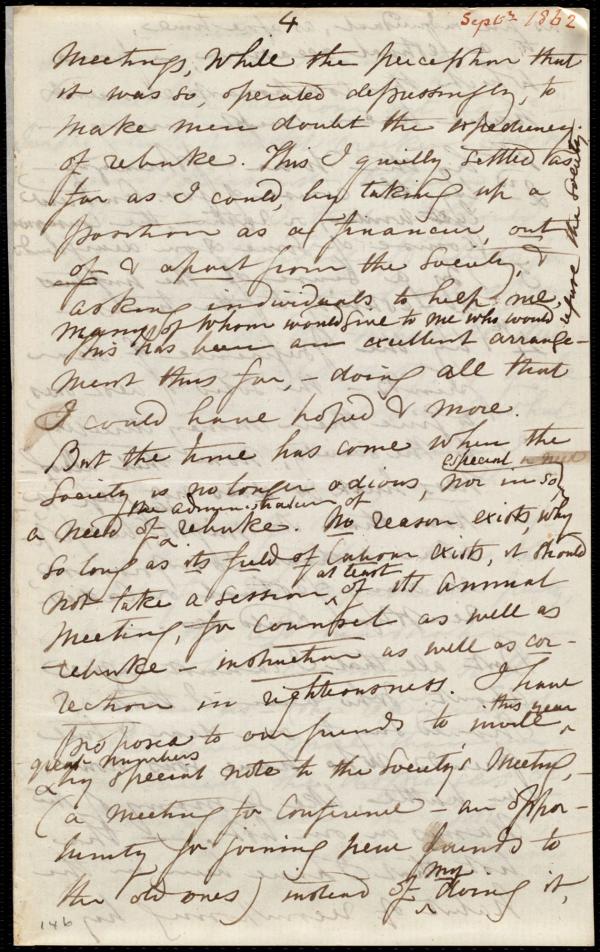 4
Sept 1862
Meetings, While the perception that
it was so, operated depressingly, to
make men doubt the expediency
of rebuke. This I quietly settled as
far as I could, by taking up a
position as a financier, out
of & apart from the Society, &
asking individuals to help me,
many of whom would give to me who would
refuse the Society.
This has been an excellent arrange-
ment thus far, – doing all that
I could have hoped & more.
But the time has come when the
especial
Society is no longer odious, nor in so
the administration of
a need of rebuke. No reason exists, why
so long as its field of labour exists, it should
at least
not take a session, of its annual
Meeting, for counsel as well as
rebuke – instruction as well as cor-
rection in righteousness. I have
this year
proposed to our friends to invite
great numbers
& by special note to the Society's Meeting, –
(a meeting for conference – an oppor-
tunity for joining new friends to
my
the old ones) instead of doing it,
146